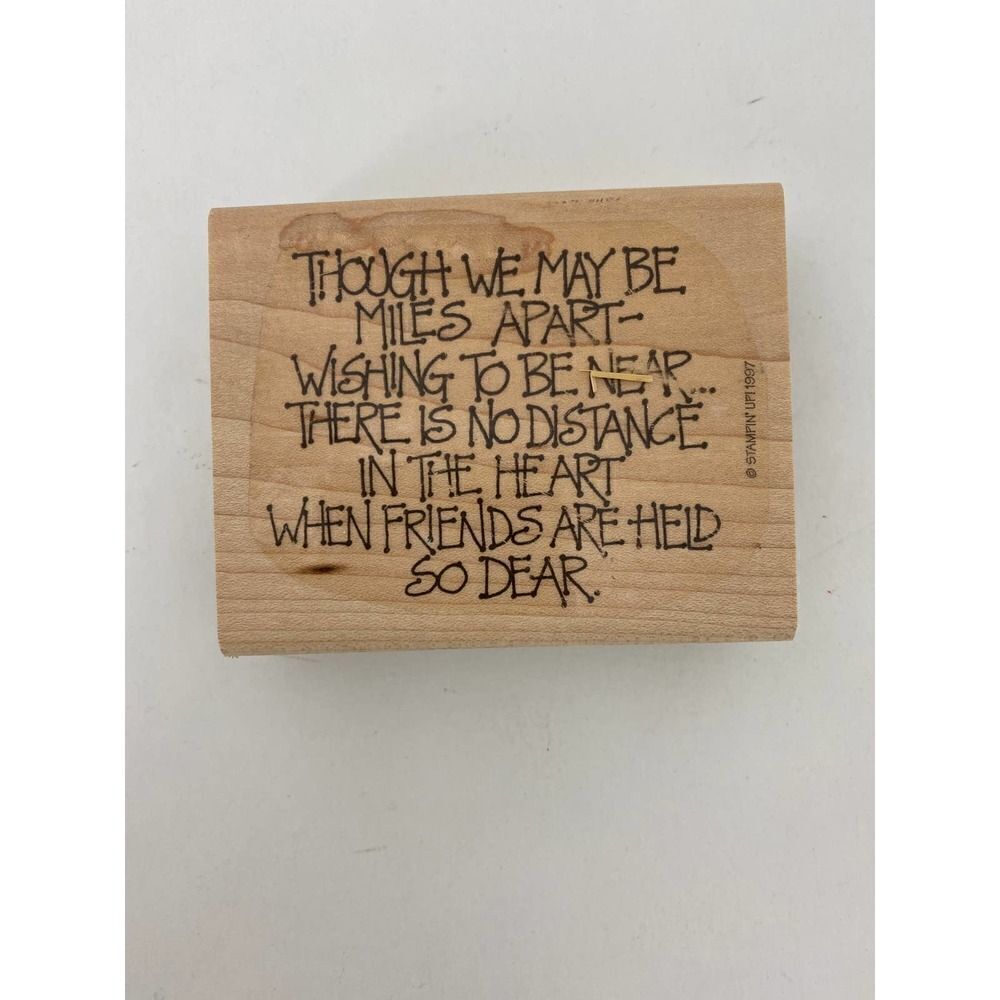 THOUGH WE MAY BE
MILES APART-
WISHING TO BE NEAR...
THERE IS NO DISTANCE
IN THE HEART
WHEN FRIENDS ARE HELD
SO DEAR.
© STAMPIN' UP! 1997